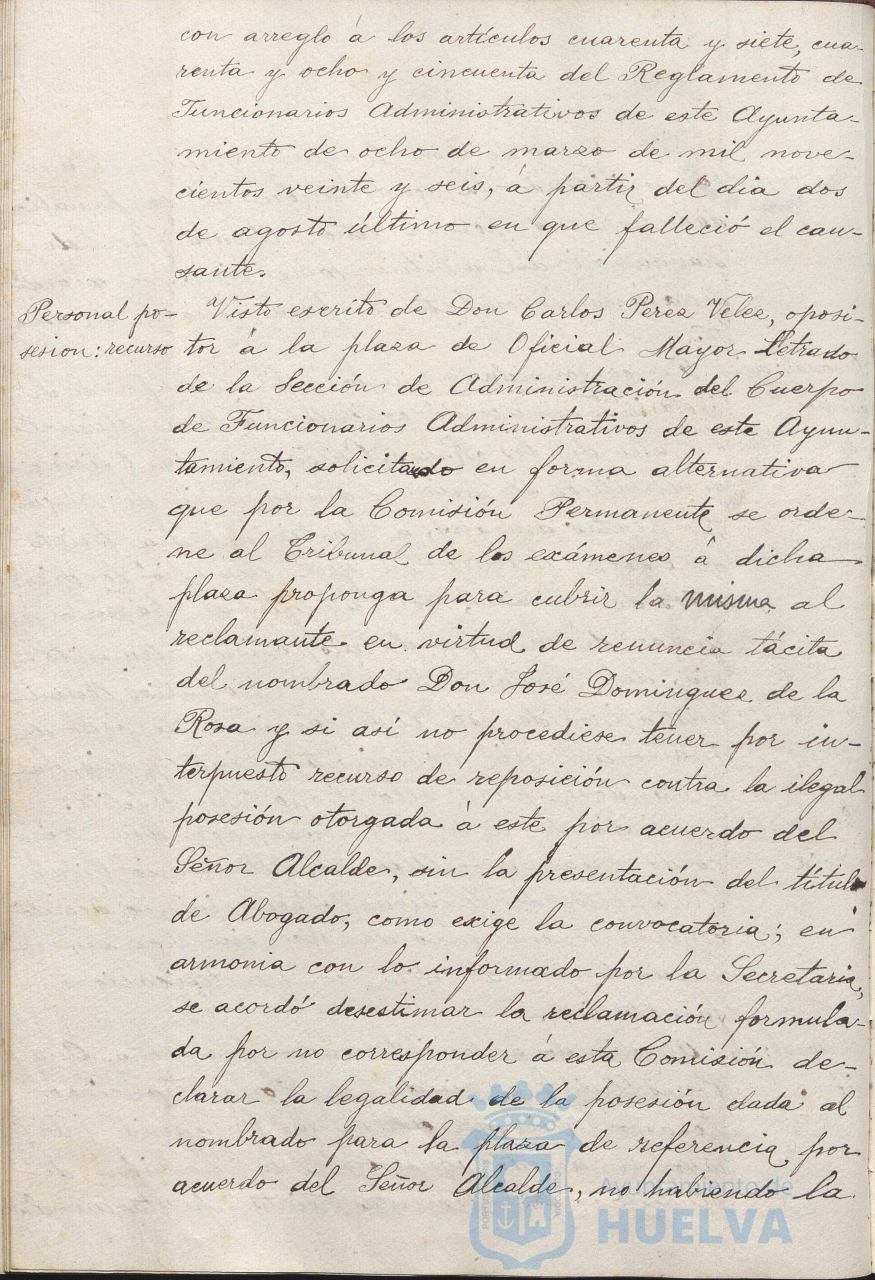 con arreglo á los artículos cuarenta y siete, cua-
renta y ocho y cincuenta del Reglamento de
Funcionarios Administrativos de este Ayunta-
miento de ocho de marzo de mil nove-
cientos veinte y seis, á partir del dia dos
de agosto último en que falleció el cau-
sante.
Personal po-
sesion: recurso
Visto escrito de Don Carlos Perez Velez, oposi-
tor á la plaza de Oficial Mayor Letrado
de la Sección de Administración del Cuerpo
de Funcionarios Administrativos de este Ayun-
tamiento, solicitando en forma alternativa
que por la Comisión Permanente se orde-
ne al Tribunal de los exámenes á dicha
plaza proponga para cubrir la misma al
reclamante en virtud de renuncia tácita
del nombrado Don José Dominguez de la
Rosa y si así no procediese tener por in-
terpuesto recurso de reposición contra la ilegal
posesión otorgada á este por acuerdo del
Señor Alcalde, sin la presentación del título
de Abogado, como exige la convocatoria; en
armonia con lo informado por la Secretaria,
se acordó desestimar la reclamación formula-
da por no corresponder á esta Comisión de-
clarar la legalidad de la posesión dada al
nombrado para la plaza de referencia, por
acuerdo del Señor Alcalde, no habiendo la
Ayuntamiento de
HUELVA